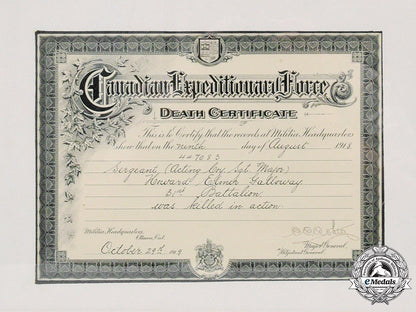 Canadian Expeditionary Force
DEATH CERTIFICATE
This is to Certify that the records at Militia Headquarters
show that on the ninth day of August 1918
447083
Sergeant (Acting Coy Sgt. Major)
Howard Elmik Galloway
31st Battalion
was killed in action
Militia Headquarters,
Ottawa, Ont.
October 29th 1919
Major General
Adjutant General
eMedals